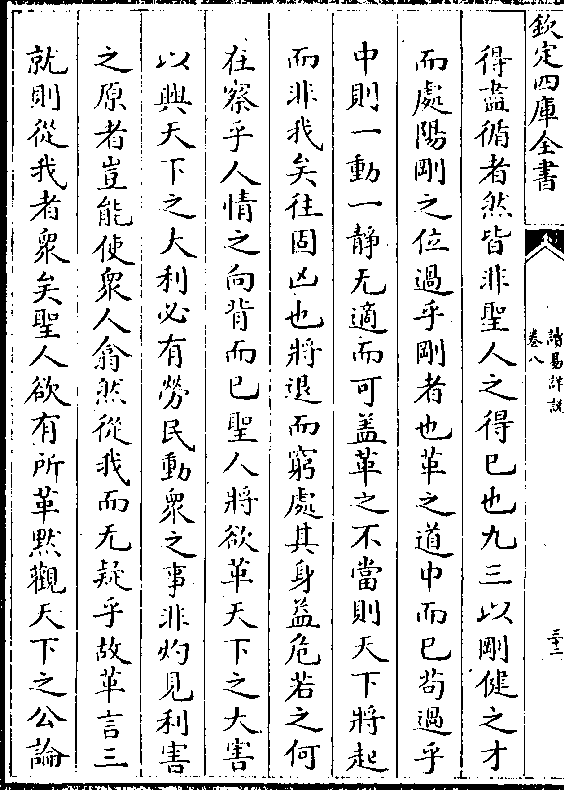 欽定四庫全書
讀易詳説
卷八
三十二
得盡循者然皆非聖人之得已也九三以剛健之才
而處陽剛之位過乎剛者也革之道中而已苟過乎
中則一動一静无適而可盖革之不當則天下將起
而非我矣往固凶也將退而窮處其身益危若之何
在察乎人情之向背而已聖人將欲革天下之大害
以興天下之大利必有勞民動衆之事非灼見利害
之原者豈能使衆人翕然從我而无疑乎故革言三
就則從我者衆矣聖人欲有所革黙觀天下之公論